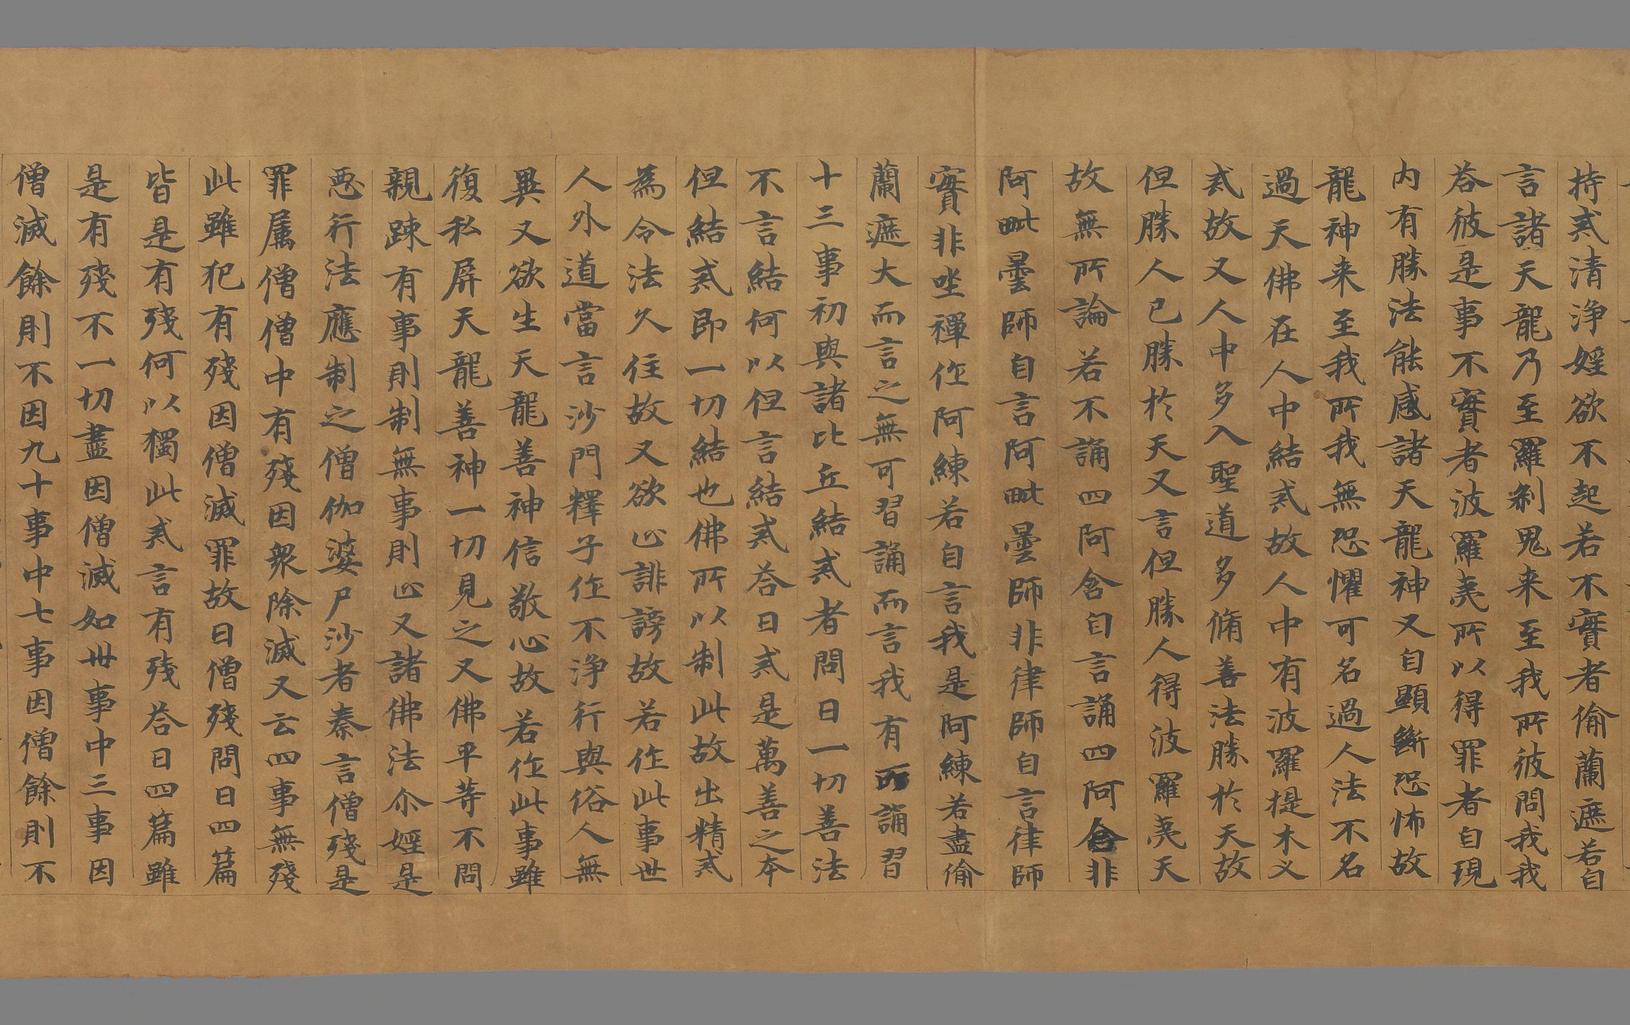 持戒清淨婬欲不起若不實者偷蘭遮若自
言諸天龍乃至羅剎鬼来至我所彼問我我
荅彼是事不實者波羅夷所以得罪者自現
内有勝法能感諸天龍神又自顯斷恐怖故
龍神来至我所我無恐懼可名過人法不名
過天佛在人中結戒故人中有波羅提木叉
戒故又人中多入聖道多脩善法勝於天故
但勝人已勝於天又言但勝人得波羅夷天
故無所論若不誦四阿含自言誦四阿含非
阿毗曇師自言阿毗曇師非律師自言律師
實非坐禪作阿練若自言我是阿練若盡偷
蘭遮大而言之無可習誦而言我有所誦習
十三事初與諸比丘結戒者問曰一切善法
不言結何以但言結戒荅曰戒是萬善之本
但結戒即一切結也佛所以制此故出精戒
為令法久住故又欲止誹謗故若作此事世
人外道當言沙門釋子作不淨行與俗人無
異又欲生天龍善神信敬心故若作此事雖
復私屏天龍善神一切見之又佛平等不問
親踈有事則制無事則止又諸佛法尒婬是
惡行法應制之僧伽婆尸沙者秦言僧殘是
罪屬僧僧中有殘因衆除滅又云四事無殘
此雖犯有殘因僧滅罪故曰僧殘問曰四篇
皆是有殘何以獨此戒言有殘荅曰四篇雖
是有殘不一切盡因僧滅如卅事中三事因
僧滅餘則不因九十事中七事因僧餘則不